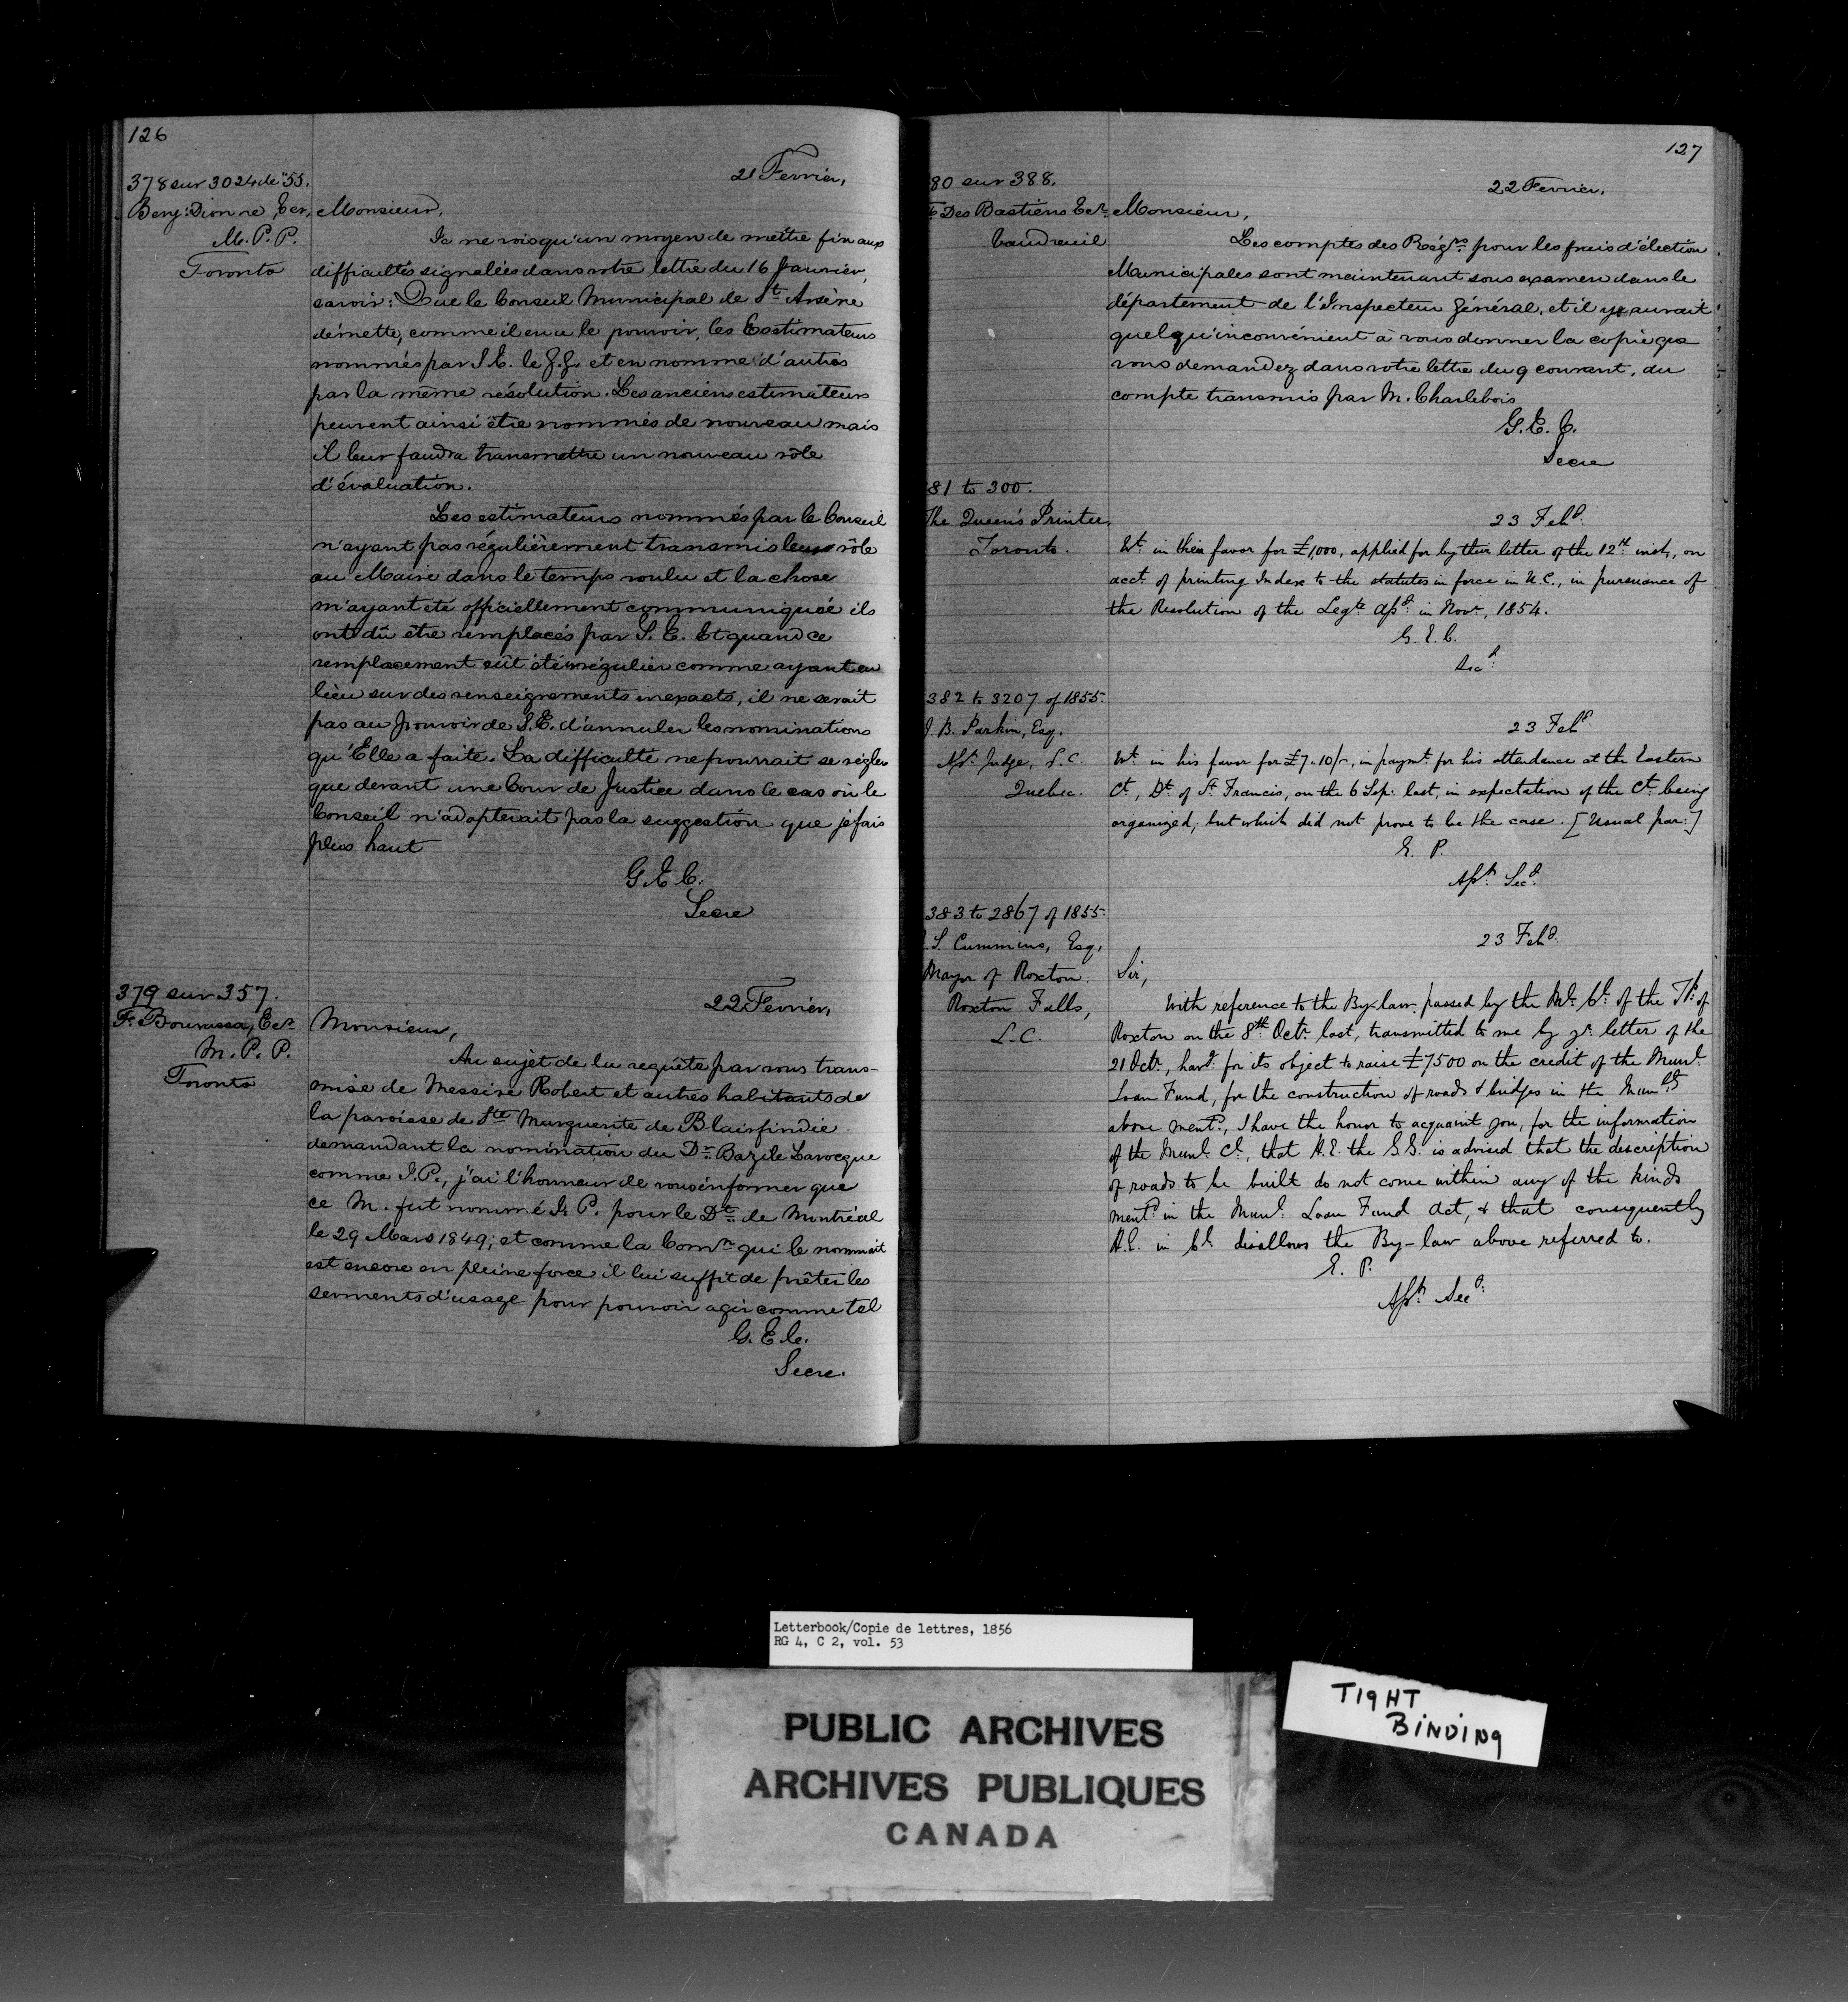 126
21 Fevrier,
378 sur 3024 de "55.
Benj: Dionne, Ecr,
M.P.P.
Toronto
Monsieur,
Je ne vois qu'un moyen de mettre fin aux
difficultés signalées dans votre lettre du 16 Janvier,
savoir: Que le Conseil Municipal de St Arsène
démette, comme il en a le pouvoir, les Esstimateurs
nommés par S.E. le G.G. et en nomme d'autres
par la même résolution. Les anciens estimateurs
peuvent ainsi être nommés de nouveau mais
il leur faudra transmettre un nouveau rôle
d'évaluation.
Les estimateurs nommés par le Conseil
n'ayant pas régulièrement transmis leurs rôle
au Maire dans le temps voulu et la chose
m'ayant été officiellement communiquée ils
ont dû être remplacés par S. E. Et quand ce
remplacement eût été irrégulier comme ayant eu
lieu sur des renseignements inexacts, il ne serait
pas au pouvoir de S.E. d'annuler les nominations
qu'Elle a faite. La difficulté ne pourrait se régler
que devant une Cour de Justice dans le cas où le
Conseil n'adopterait pas la suggestion que je fais
plus haut
G.E.C.
Secre
379 sur 357.
F. Bourassa, Ecr.
M.P.P.
Toronto
22 Fevrier,
Monsieur,
Au sujet de la requête par vous trans-
mise de Messire Robert et autres habitants de
la paroisse de Ste Marguerite de Blairfindie
demandant la nomination du Dr. Bazile Larocque
comme J.P., j'ai l'honneur de vous informer que
ce M. fut nommé J. P. pour le Dt. de Montréal
le 29 Mars 1849; et comme la Comn qui le nommait
est encore en pleine force il lui suffit de prêter les
serments d'usage pour pouvoir agir comme tel
G.E.C.
Secre.
127
80 sur 388.
Des Bastiens Ecr.
Vaudreuil
22 Fevrier.
Monsieur,
Les comptes des Régrs. pour les frais d'élection
Municipales sont maintenant sous examen dans le
département de l'Inspecteur Général, et il y aurait
quelqu'inconvénient à vous donner la copie que
vous demandez dans votre lettre du 9 courant, du
compte transmis par M. Charlebois
G.E.C.
Secre
81 to 300.
The Queen's Printer,
Toronto.
23 Feby.
Wt. in their favor for £1,000, applied for by their letter of the 12th inst, on
acct. of printing Index to the statutes in force in U.C., in pursuance of
the Resolution of the Legte. Assy. in Novr, 1854.
G.E.C.
Secy.
382 to 3207 of 1855.
J. B. Parkin, Esq.
Asst. Judge, S.C.
Quebec.
23 Feby
Wt. in his favor for £7.10/-, in paymt. for his attendance at the Eastern
Ct, Dt. of St. Francis, on the 6 Sep. last, in expectation of the Ct. being
organized, but which did not prove to be the case. [Usual par:]
E. P.
Asst. Secy.
383 to 2867 of 1855.
S. Cummins, Esq,
Mayor of Roxton.
Roxton Falls,
L.C.
23 Feby.
Sir,
With reference to the By-law passed by the Ml. Cl. of the Tp. of
Roxton on the 8th Octr. last, transmitted to me by yr. letter of the
21 Octr., havg. for its object to raise £7,500 on the credit of the Munl.
Loan Fund, for the construction of roads & bridges in the Munlty
above mentd., I have the honor to acquaint you, for the information
of the Munl. Cl., that H.E. the G.G. is advised that the description
of roads to be built do not come within any of the kinds
mentd. in the Munl. Loan Fund Act, & that consequently
H.E. in Cl. disallows the By-law above referred to.
E. P.
Asst. Secy.
Letterbook/Copie de lettres, 1856
RG 4, C 2, vol. 53
PUBLIC ARCHIVES
ARCHIVES PUBLIQUES
CANADA
TIGHT
BINDING